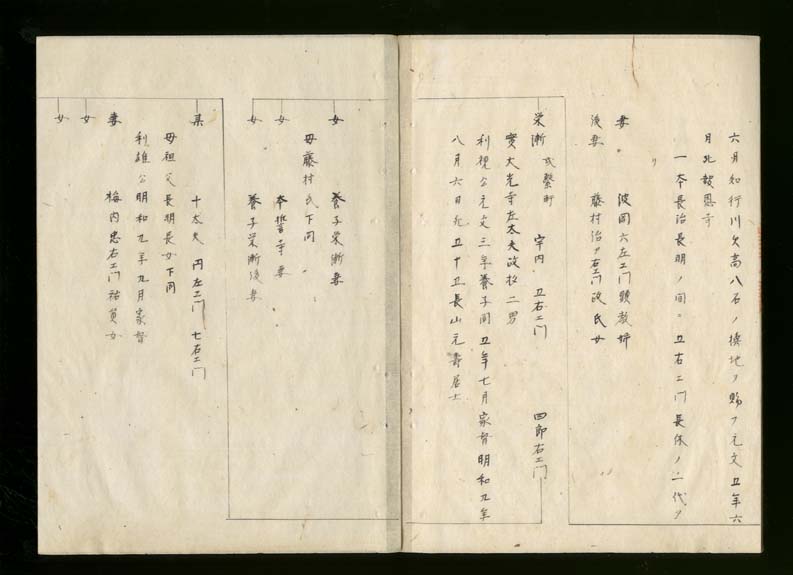 六月知行川欠高八石ノ換地ヲ賜フ元文五年六
月死報恩寺
一本長治長明ノ間ニ五右エ門長休ノ二代ヲ
リ
妻 波岡六左エ門頭教姉
後妻 藤村治ア右エ門政氏女
栄漸 或繋漸 宇内 五右エ門 四郎右エ門
実大光寺左太夫政枚二男
利視公元文三年養子同五年七月家督明和九年
八月六日死五十五長山元壽居士
女 養子栄漸妻
母藤村氏下同
女 本誓寺妻
女 養子栄漸後妻
某 十太夫 円左エ門 七右エ門
母祖父長明長女下同
利雄公明和九年九月家督
妻 梅内忠右エ門祐員女
女
女